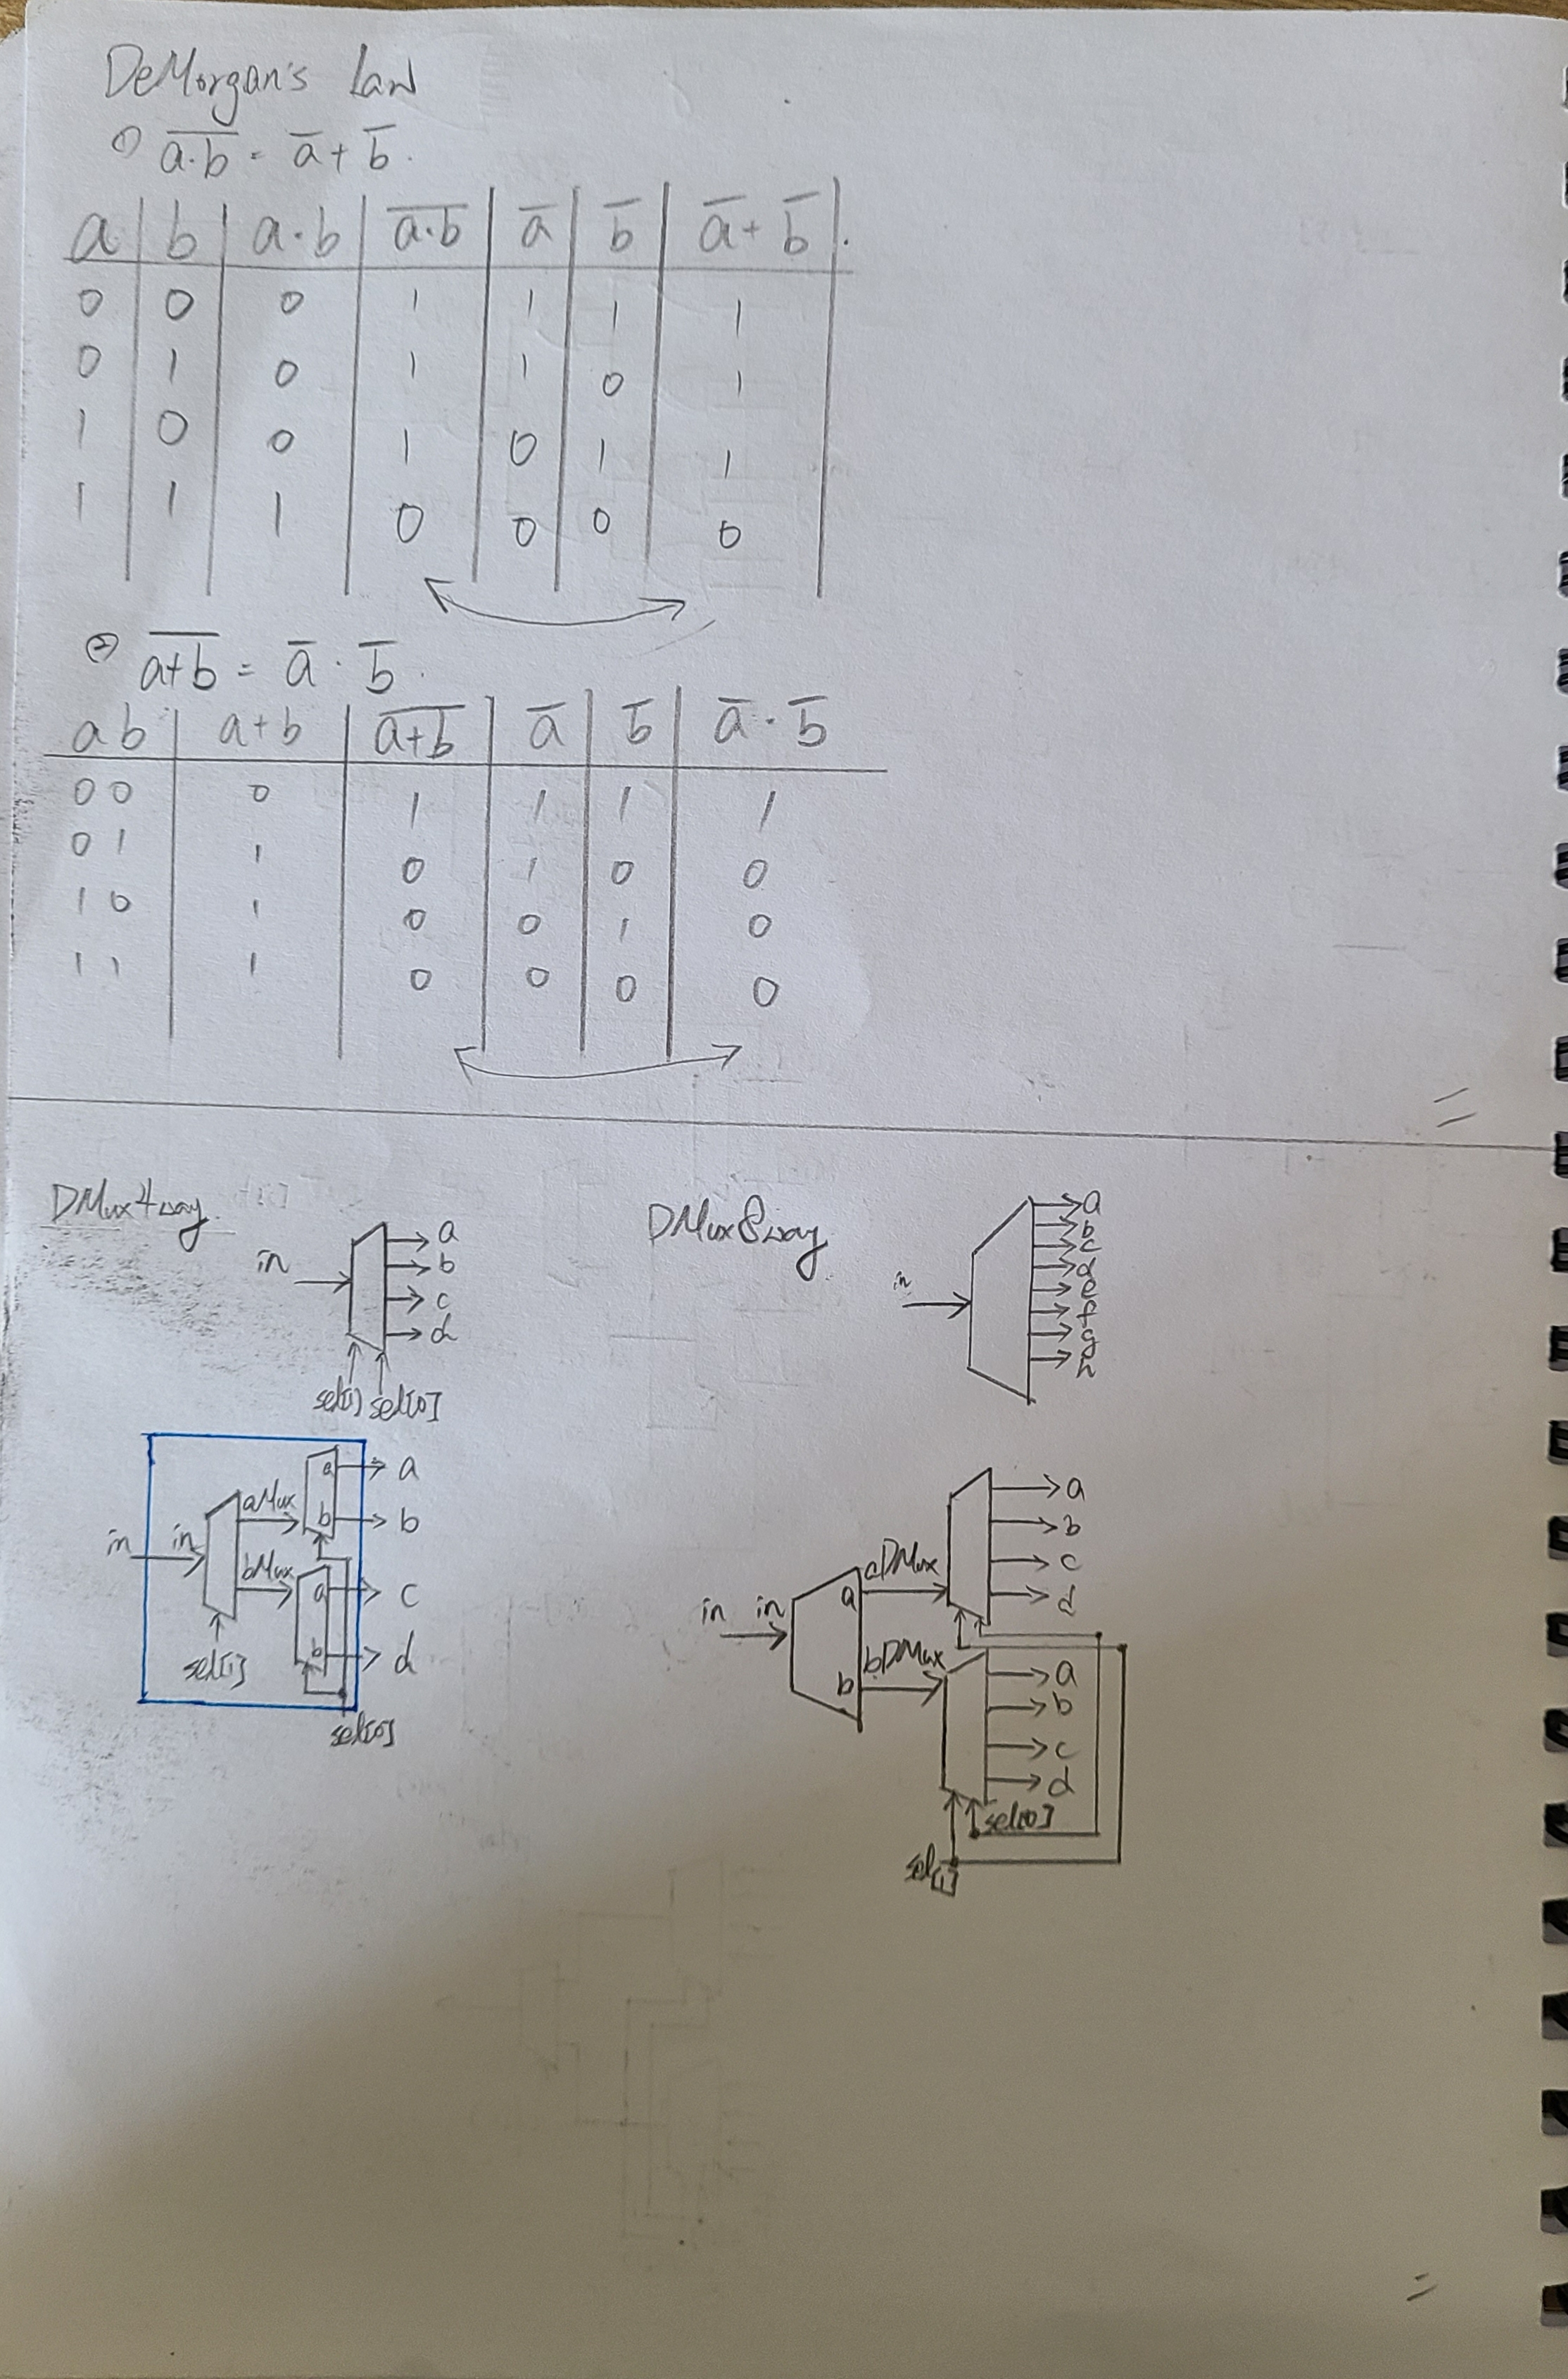 DeMorgan's Law
① \overline{a·b} = \overline{a} + \overline{b}.
a b a·b \overline{a·b} \overline{a} \overline{b} \overline{a} + \overline{b}
0 0 0 1 1 1 1
0 1 0 1 1 0 1
1 0 0 1 0 1 1
1 1 1 0 0 0 0
② \overline{a+b} = \overline{a} · \overline{b}.
a b a+b \overline{a+b} \overline{a} \overline{b} \overline{a} · \overline{b}
0 0 0 1 1 1 1
0 1 1 0 1 0 0
1 0 1 0 0 1 0
1 1 1 0 0 0 0
DMux4way
in
a
b
c
d
sel[1] sel[0]
in in
aMux
bMux
a
b
a
b
a
b
c
d
sel[1]
sel[0]
DMux8way
in
a
b
c
d
e
f
g
h
in in
a
b
aDMux
bDMux
a
b
c
d
a
b
c
d
sel[0]
sel[1]